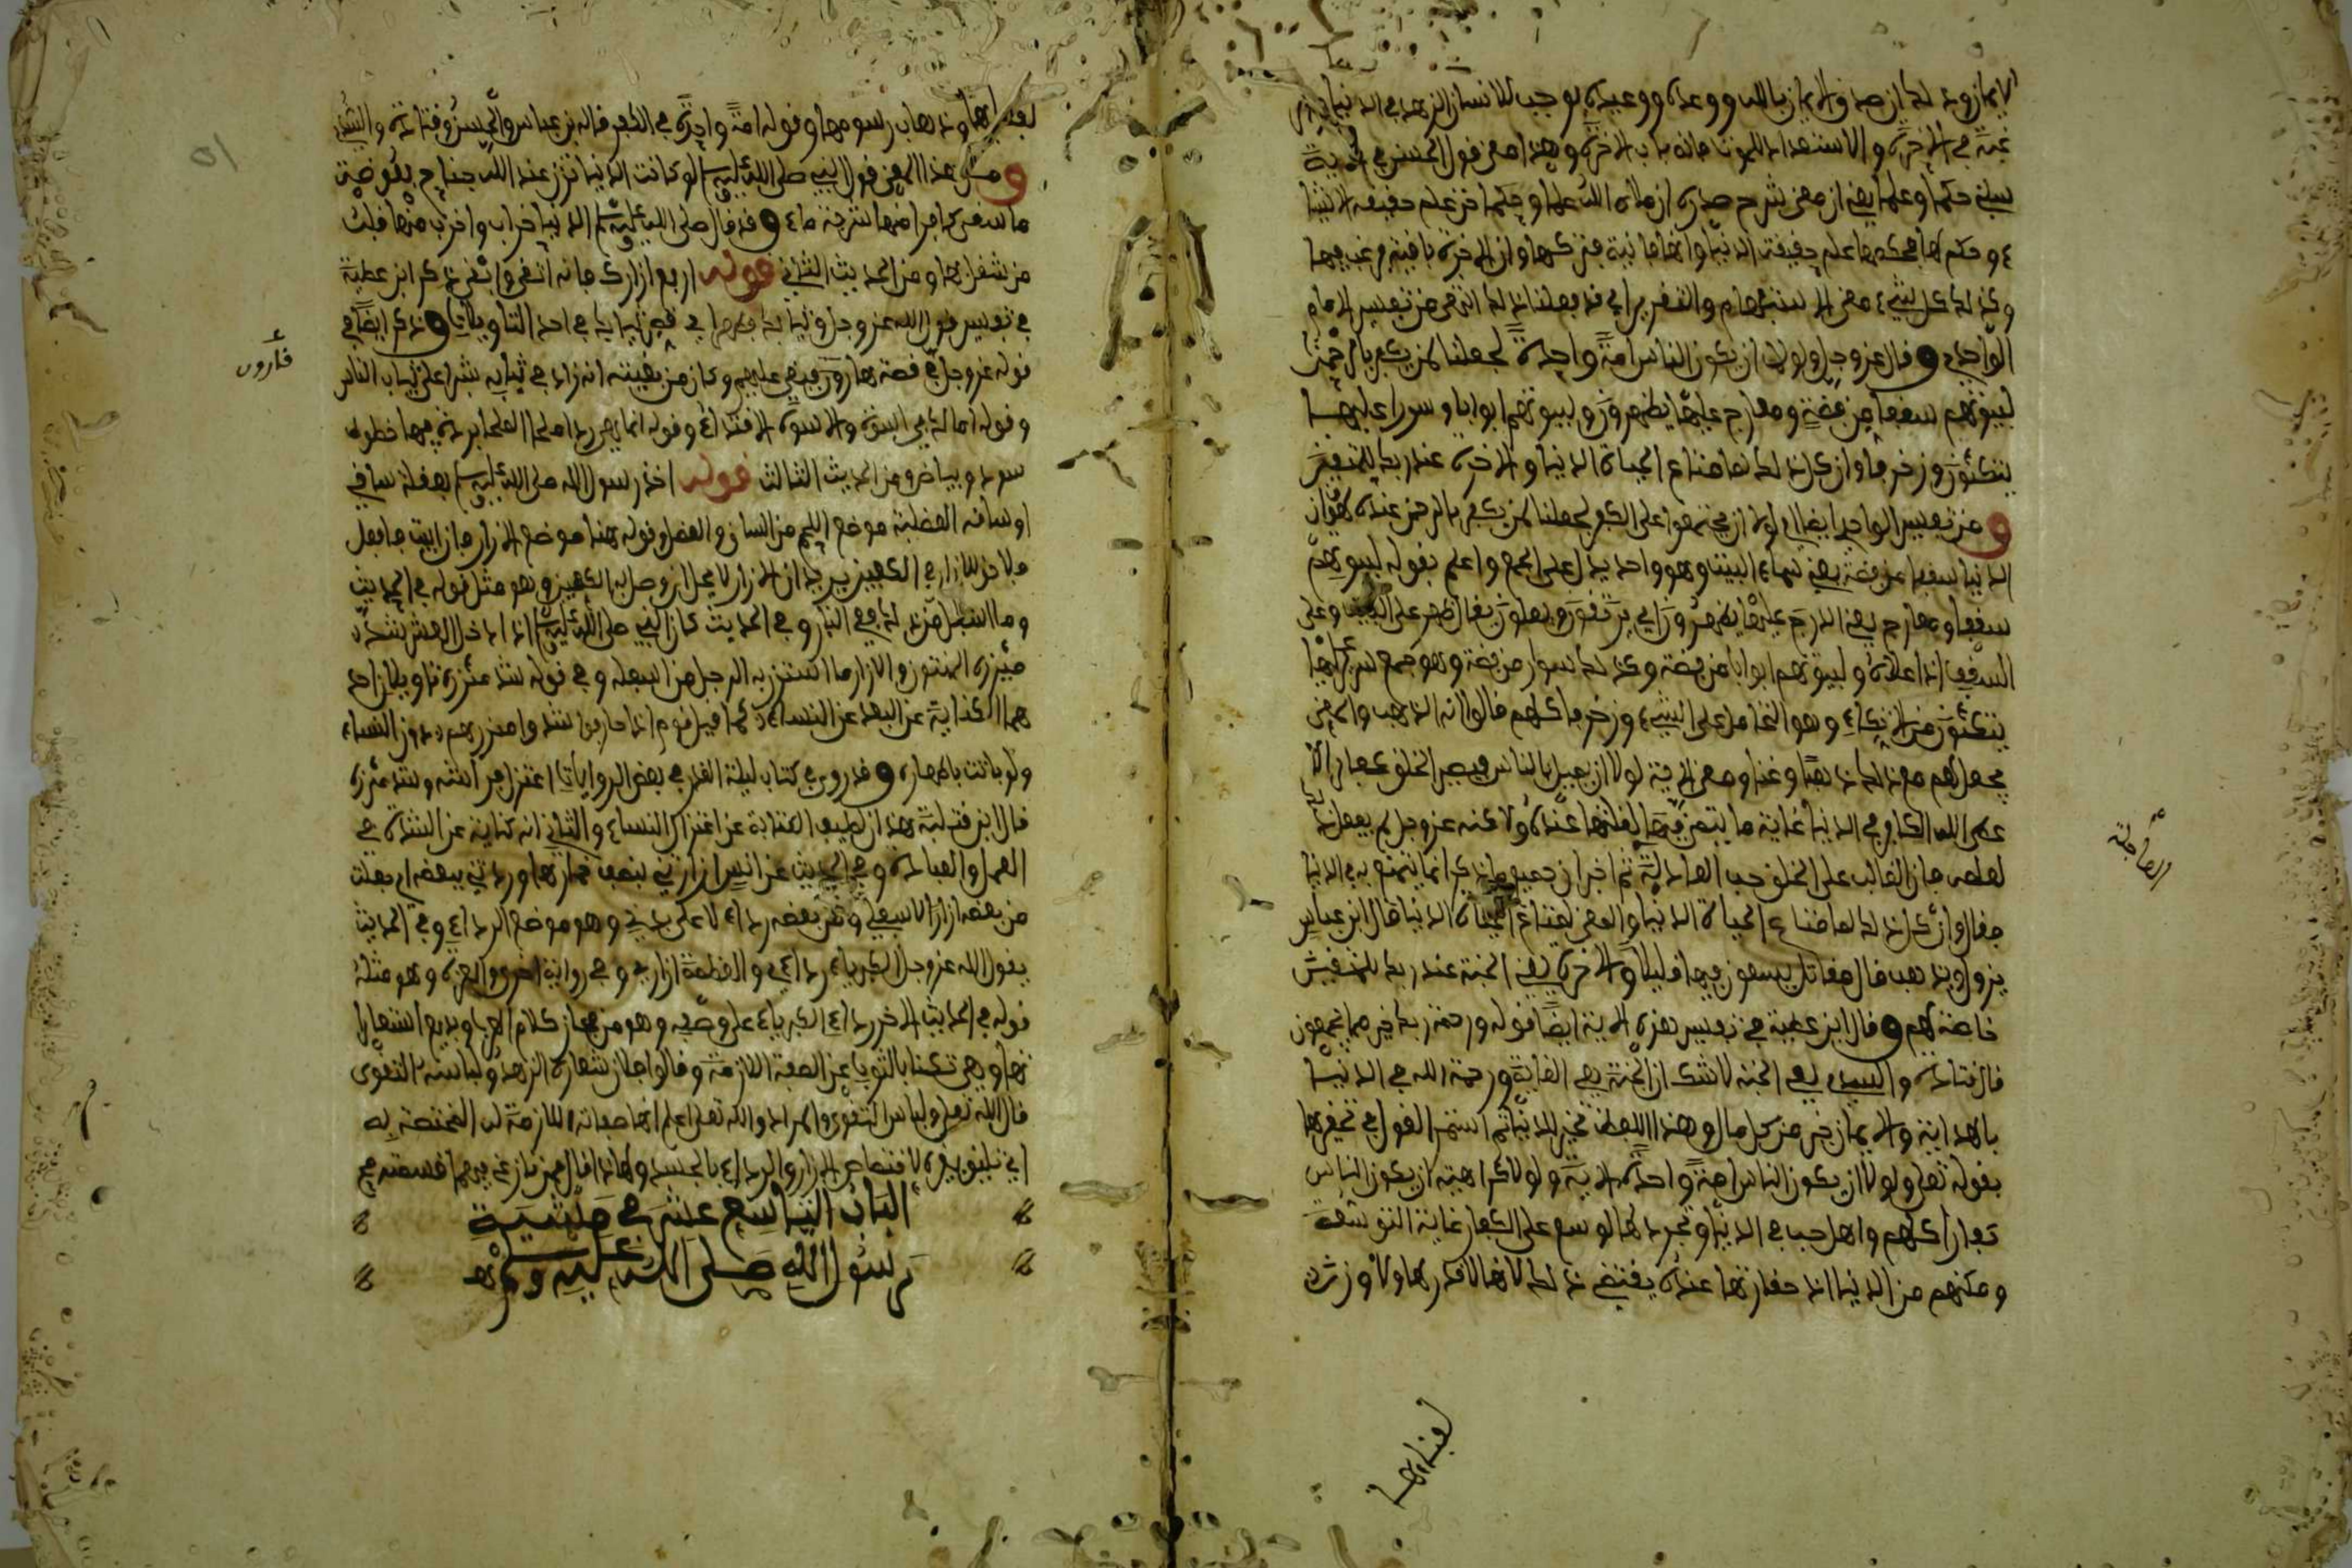 الايمان وذلك ان صدق الايمان بالله ووعده ووعيده يوجب للانسان الزهد في الدنيا
غبة في الاخرة والاستعداد للموت فانه باب الاخرة وهذا معنى قول الحسن في
حكما وعلما يعني ان من شرح صدره ازداد الله علما وحكما حتى علم حقيقة الاشيا
ء وحكم لها بحكمها علم حقيقة الدنيا وانها فانية فتركها وان الاخرة باقية فرغب فيها
وكذلك كل شيء معنى الاستفهام والتقرير اي قد فعلنا ذلك انتهى من تفسير الامام
الواحدي وقال عز وجل ولولا ان يكون الناس امة واحدة لجعلنا لمن يكفر بالرحمن
لبيوتهم سقفا من فضة ومعارج عليها يظهرون ولبيوتهم ابوابا وسررا عليها
يتكئون وزخرفا وان كل ذلك لما متاع الحياة الدنيا والاخرة عند ربك للمتقين
ومن تفسير الواحدي ايضا اي لولا ان يجتمعوا على الكفر لجعلنا لمن يكفر بالرحمن عنده لهوان
الدنيا سقفا من فضة يعني سماء البيت وهو واحد يدل على الجمع واعلم بقوله لبيوتهم
سقفا ومعارج يعني الدرج عليها يظهرون اي يرتقون ويعلون يقال ظهر على البيت وعلى
السقف اذا علاه ولبيوتهم ابوابا من فضة وكذلك سرر من فضة وهو جمع سرير عليها
يتكئون من الاتكاء وهو التحامل على الشيء وزخرفا كلهم قالوا انه الذهب والمعنى
يجعل لهم مع ذلك ذهبا وغنا ومعنى الاية لولا ان يميل بالناس فيصير الخلق كفارا لا
عطى الله الكافر في الدنيا غاية ما يتمنى فيها لقلتها عنده ولاكنه عز وجل لم يفعل ذلك
لعلمه بان الغالب على الخلق حب العاجلة ثم اخبر ان جميع ما ذكر انما يتمتع به في الدنيا
فقال وان كل ذلك لما متاع الحياة الدنيا والمعنى لمتاع الحياة الدنيا قال ابن عباس
يزول ويذهب قال مقاتل يتمتعون فيها قليلا والاخرة يعني الجنة عند ربك للمتقين
خاصة لهم وقال ابن عطية في تفسير هذه الاية ايضا قوله ورحمة ربك خير مما يجمعون
قال قتادة والسدي يعني الجنة لا شك ان الجنة هي الغاية ورحمة الله في الدنيا
بالهداية والايمان خير من كل مال وهذا اللفظ تحقير للدنيا ثم استمر القول في تحقيرها
بقوله تعلى ولولا ان يكون الناس امة واحدة الاية ولولا كراهية ان يكون الناس
كفارا كلهم واهل حب في الدنيا وتجرد لها لوسع على الكفار غاية التوسعة
ومكنهم من الدنيا اذ حقارتها عنده يقتضي ذلك لانها لا قدر لها ولا وزن
لفنائها
العاجلة
لفنائها وذهاب رسومها وقوله امة واحدة في الكفر قاله بن عباس والحسن وقتادة والسدي
ومن هذا المعنى قول النبي صلى الله عليه وسلم لو كانت الدنيا تزن عند الله جناح بعوضة
ما سقى كافرا منها شربة ماء وقد قال صلى الله عليه وسلم الدنيا خراب واخرب منها قلب
من شغل بها ومن الحديث الثاني قوله ارفع ازارك فانه اتقى وانقى ذكر ابن عطية
في تفسير قول الله عز وجل وثيابك فطهر اي قصر ثيابك في احد التاويلات وذكر ايضا في
قوله عز وجل في قصة هارون فبغى عليهم وكان من بغيته انه زاد في ثيابه شبرا على ثياب الناس
قارون
وقوله اما لك في اسوة والاسوة الاقتداء وقوله انما هي بردة ملحا الملحا بردة فيها خطوط
سود وبياض ومن الحديث الثالث قوله اخذ رسول الله صلى الله عليه وسلم بعضلة ساقي
او ساقه العضلة موضع اللحم من الساق والعضل وقوله هذا موضع الازار فان ابيت فاسفل
فلا حق للازار في الكعبين يريد ان الازار لا يحل ان يوصل به الكعبين وهو مثل قوله في الحديث
وما اسفل من ذلك ففي النار وفي الحديث كان النبي صلى الله عليه وسلم اذا دخل العشر شد
مئزره المئزر والازار ما استتر به الرجل من اسفله وفي قوله شد مئزره تاويلان احد
هما الكناية عن البعد عن النساء كما قيل قوم اذا حاربوا شدوا مئزرهم دون النساء
ولو باتت باطهار وقد روي في كتاب ليلة القدر في بعض الروايات اعتزل فراشه وشد مئزره
قال ابن قتيبة هذا من لطيف الكناية عن اعتزال النساء والثاني انه كناية عن الشدة في
العمل والعبادة وفي الحديث عن انس ازرتني بنصف خمارها وردتني ببعضه اي جعلت
من بعضه ازارا لاسفلي ومن بعضه رداء لاعلى بدني وهو موضع الرداء وفي الحديث
يقول الله عز وجل الكبرياء ردائي والعظمة ازاري وفي رواية اخرى والعزة وهو مثل
قوله في الحديث الاخر رداء الكبرياء على وجهه وهو من مجاز كلام العرب وبديع استعارا
تها وهي تكنا بالثوب عن الصفة اللازمة وقالوا فلان شعاره الزهد ولباسه التقوى
قال الله تعلى ولباس التقوى والمراد والله تعلى اعلم انها صفاته اللازمة له المختصة به
اي تليق بغيره لاختصاص الازار والرداء بالجسد ولهذا قال فمن نازعني فيهما قصمته
الباب التاسع عشر في مشية
رسول الله صلى الله عليه وسلم